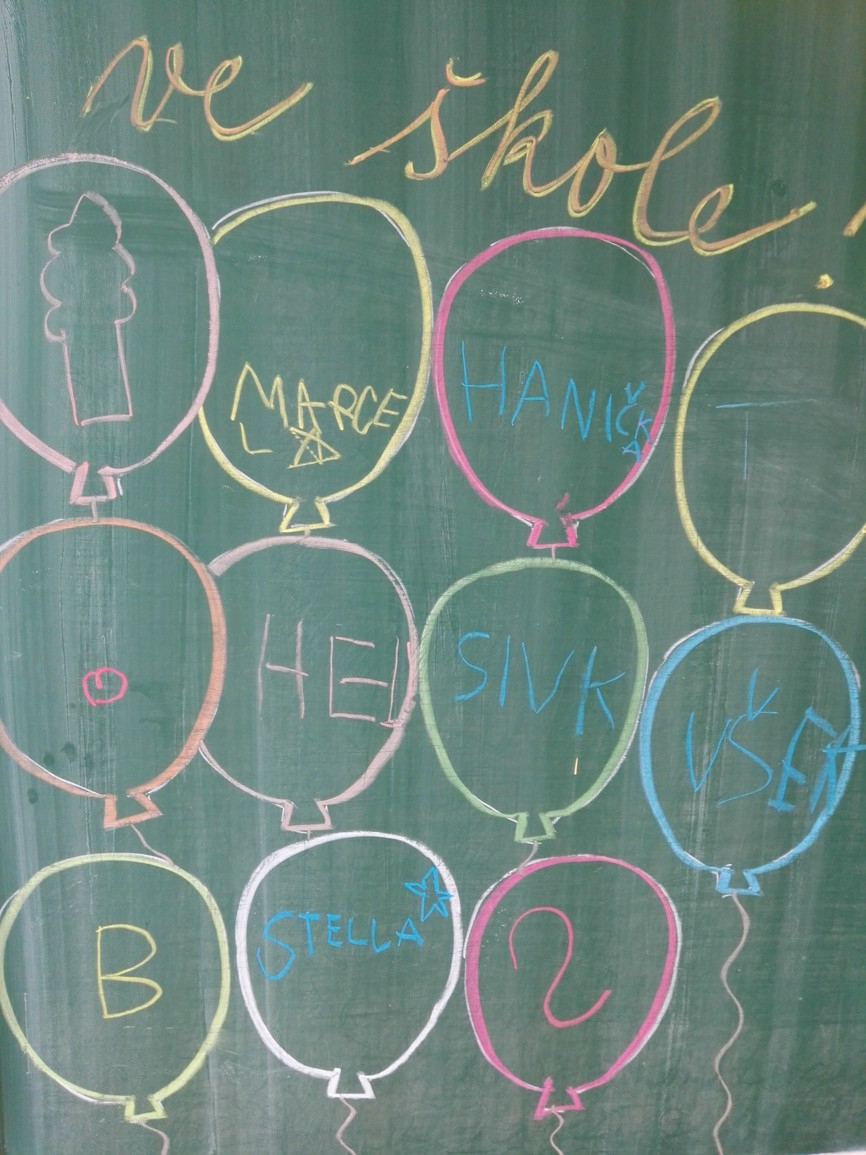 ve škole!
MARCE
L
HANIČK
A
T
HEJ
SIVK
VŠEN
B
STELLA
2